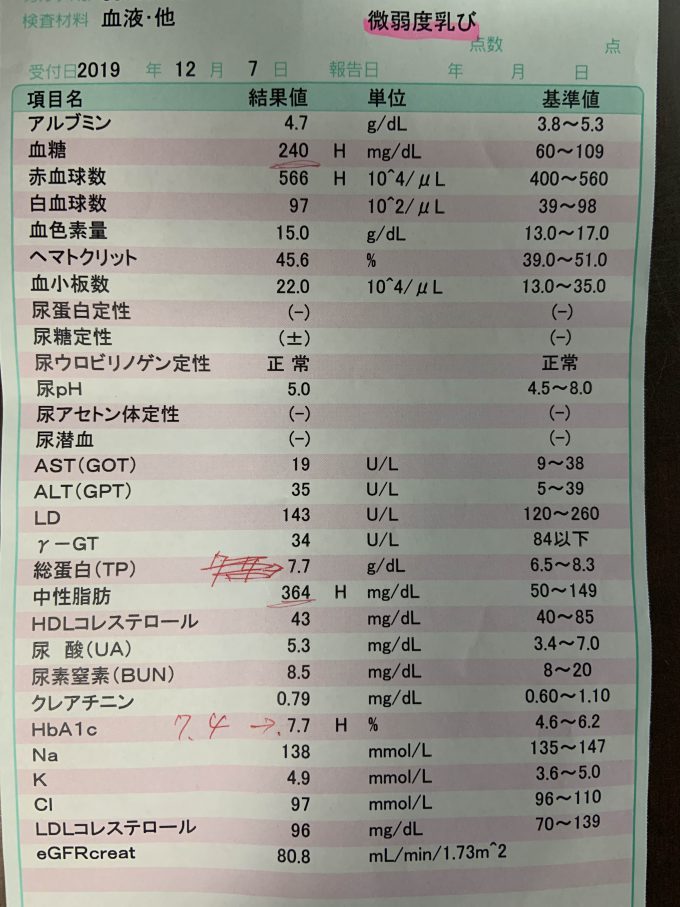 検査材料 血液・他
微弱度乳び
点数 点
受付日 2019 年 12 月 7 日 報告日 年 月 日
項目名 結果値 単位 基準値
アルブミン 4.7 g/dL 3.8～5.3
血糖 240 H mg/dL 60～109
赤血球数 566 H 10^4/μL 400～560
白血球数 97 10^2/μL 39～98
血色素量 15.0 g/dL 13.0～17.0
ヘマトクリット 45.6 % 39.0～51.0
血小板数 22.0 10^4/μL 13.0～35.0
尿蛋白定性 (-) (-)
尿糖定性 (±) (-)
尿ウロビリノゲン定性 正常 正常
尿pH 5.0 4.5～8.0
尿アセトン体定性 (-) (-)
尿潜血 (-) (-)
AST(GOT) 19 U/L 9～38
ALT(GPT) 35 U/L 5～39
LD 143 U/L 120～260
γ-GT 34 U/L 84以下
総蛋白(TP) 7.7 g/dL 6.5～8.3
中性脂肪 364 H mg/dL 50～149
HDLコレステロール 43 mg/dL 40～85
尿 酸(UA) 5.3 mg/dL 3.4～7.0
尿素窒素(BUN) 8.5 mg/dL 8～20
クレアチニン 0.79 mg/dL 0.60～1.10
HbA1c 7.4 → 7.7 H % 4.6～6.2
Na 138 mmol/L 135～147
K 4.9 mmol/L 3.6～5.0
Cl 97 mmol/L 96～110
LDLコレステロール 96 mg/dL 70～139
eGFRcreat 80.8 mL/min/1.73m^2